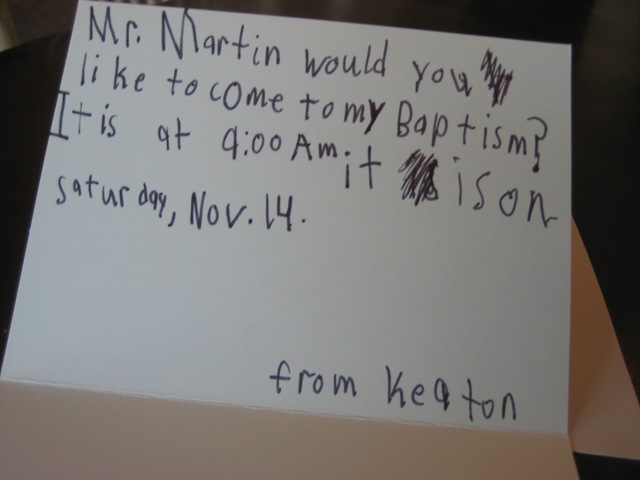 Mr. Martin would you
like to come to my Baptism?
It is at 9:00 Am. it is on
saturday, Nov. 14.
from Keaton